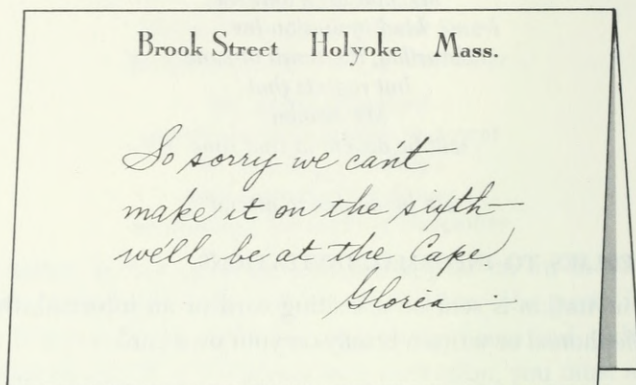 Brook Street Holyoke Mass.
So sorry we can't
make it on the sixth—
we'll be at the Cape
Gloria—